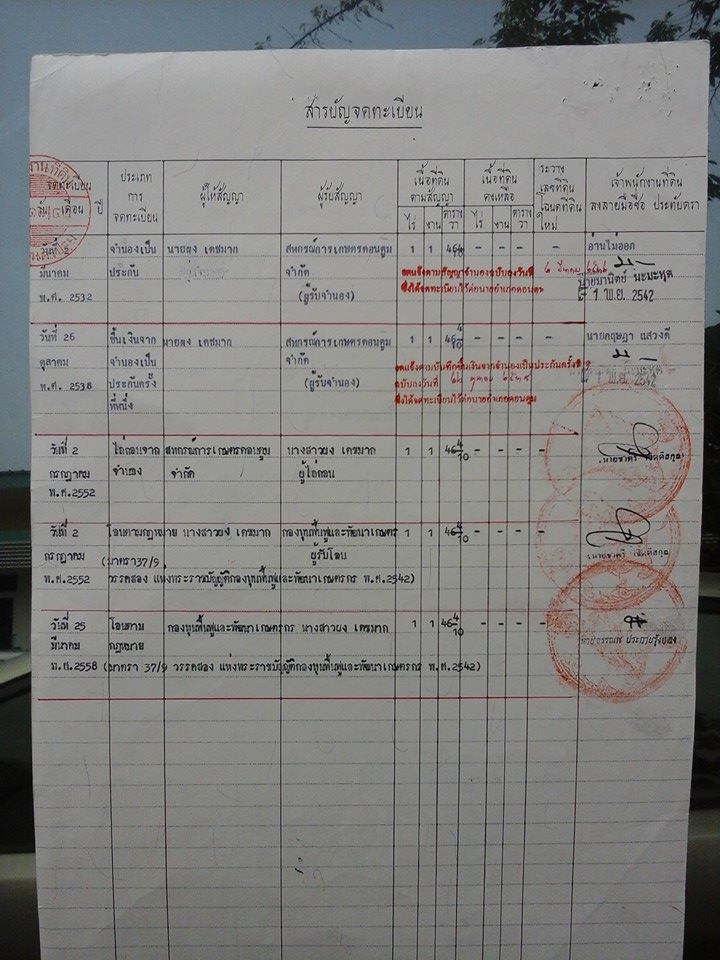 สารบัญจดทะเบียน
จดทะเบียน
วัน เดือน ปี
ประเภท
การ
จดทะเบียน
ผู้ให้สัญญา
ผู้รับสัญญา
เนื้อที่ดิน
ตามสัญญา
ไร่ งาน ตารางวา
เนื้อที่ดิน
คงเหลือ
ไร่ งาน ตารางวา
ระวาง
เลขที่ดิน
โฉนดที่ดิน
ใหม่
เจ้าพนักงานที่ดิน
ลงลายมือชื่อ ประทับตรา
วันที่ 2 จำนองเป็น นายผง เดชมาก สหกรณ์การเกษตรดอนตูม 1 1 46 4/10 - - - - อ่านไม่ออก
มีนาคม ประกัน จำกัด
พ.ศ. 2532 (ผู้รับจำนอง)
จดแจ้งตามสัญญาจำนองฉบับลงวันที่
ซึ่งได้จดทะเบียนไว้ต่อนายอำเภอดอนตูม
นายมานิตย์
1 พ.ย. 2542
วันที่ 26 ขึ้นเงินจาก นายผง เดชมาก สหกรณ์การเกษตรดอนตูม 1 1 46 4/10 - - - - นายกฤษฎา แสวงดี
ตุลาคม จำนองเป็น จำกัด
พ.ศ. 2538 ประกันครั้ง (ผู้รับจำนอง)
ที่หนึ่ง
จดแจ้งตามบันทึกขึ้นเงินจากจำนองเป็นประกันครั้งที่
ฉบับลงวันที่
ซึ่งได้จดทะเบียนไว้ต่อนายอำเภอดอนตูม
1 พ.ย. 2542
วันที่ 2 ไถ่ถอนจาก สหกรณ์การเกษตรดอนตูม นางสาวผง เดชมาก 1 1 46 4/10 - - - -
กรกฎาคม จำนอง จำกัด ผู้ไถ่ถอน
พ.ศ.2552
วันที่ 2 โอนตามกฎหมาย นางสาวผง เดชมาก กองทุนฟื้นฟูและพัฒนาเกษตรกร 1 1 46 4/10 - - - -
กรกฎาคม (มาตรา 37/9 ผู้รับโอน
พ.ศ.2552 วรรคสอง แห่งพระราชบัญญัติกองทุนฟื้นฟูและพัฒนาเกษตรกร พ.ศ.2542)
วันที่ 25 โอนตาม กองทุนฟื้นฟูและพัฒนาเกษตรกร นางสาวผง เดชมาก 1 1 46 4/10 - - - -
มีนาคม กฎหมาย
พ.ศ.2558 (มาตรา 37/9 วรรคสอง แห่งพระราชบัญญัติกองทุนฟื้นฟูและพัฒนาเกษตรกร พ.ศ.2542)